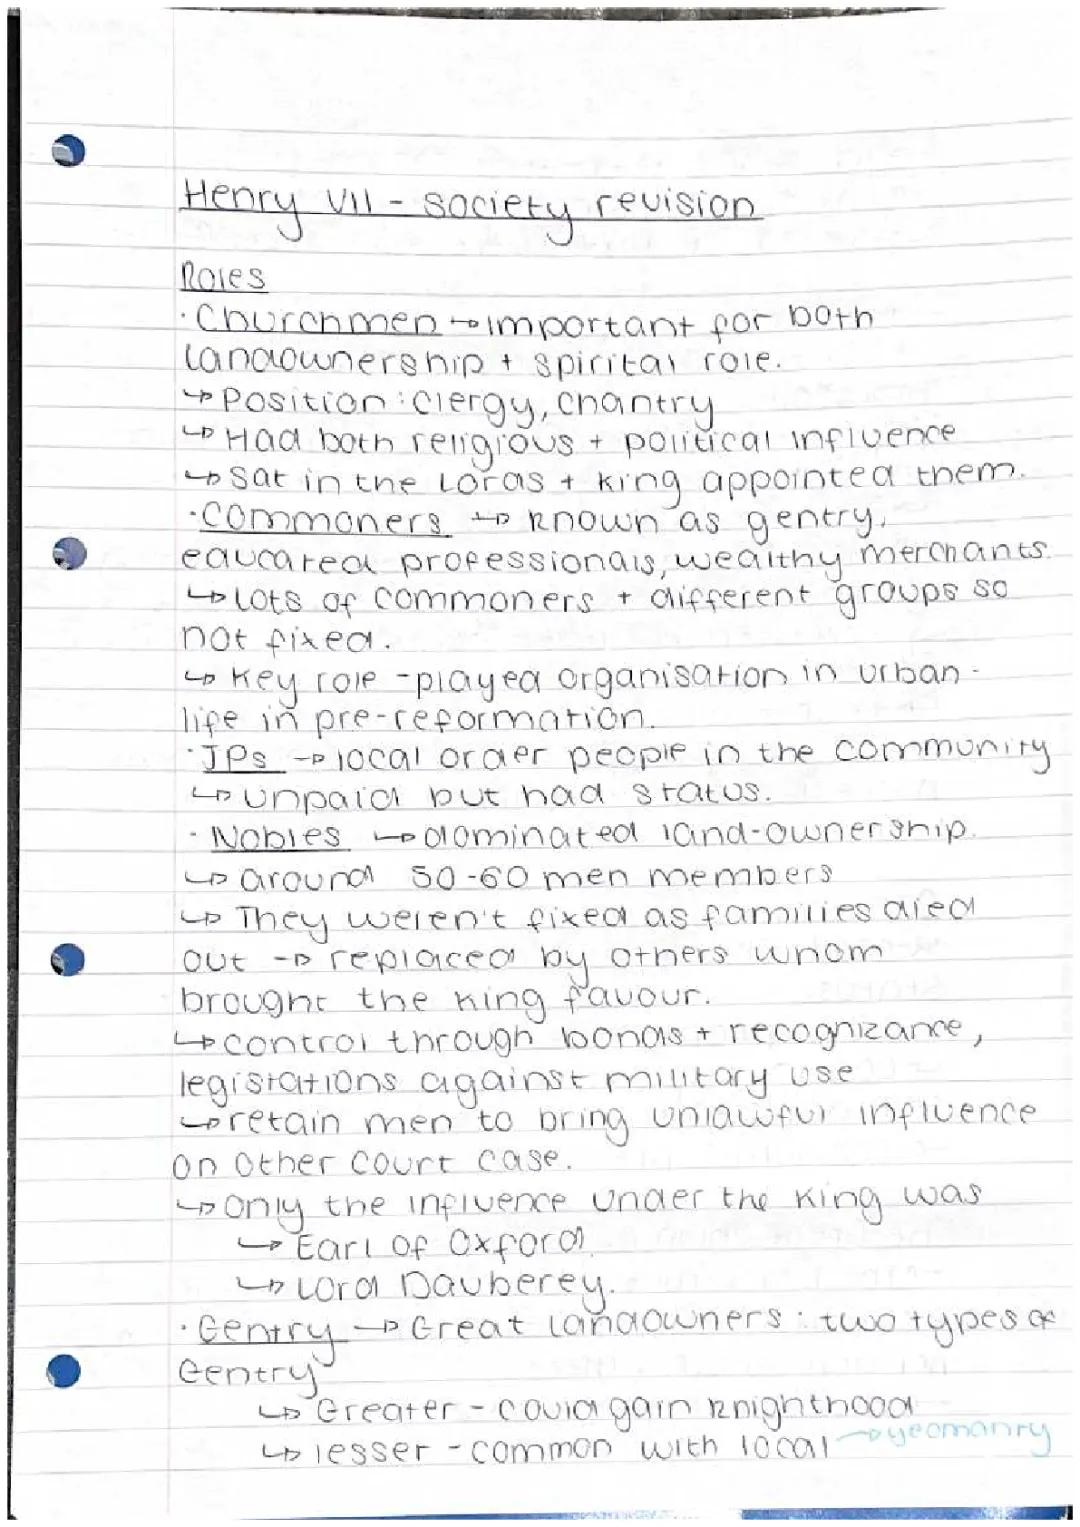 Henry VII - society revision
Roles
· Churchmen → important for both
landownership + spirital role.
↳ Position : Clergy, Chantry
↳ Had both religious + political influence
↳ Sat in the Lords + King appointed them.
· Commoners ↳ known as gentry,
educated professionals, wealthy merchants.
↳ lots of commoners + different groups so
not fixed.
↳ Key role - played organisation in urban -
life in pre-reformation.
· JPs → local order people in the community
↳ unpaid but had status.
· Nobles ↳ dominated land-ownership.
↳ around 50-60 men members
↳ They weren't fixed as families died
out → replaced by others whom
brought the king favour.
↳ control through bonds + recognizance,
legistations against military use
↳ retain men to bring unlawful influence
on other court case.
↳ Only the influence under the King was
↳ Earl of Oxford.
↳ Lord Dauberey.
· Gentry → Great landowners : two types of
Gentry
↳ Greater - could gain knighthood
↳ lesser - common with local → yeomanry